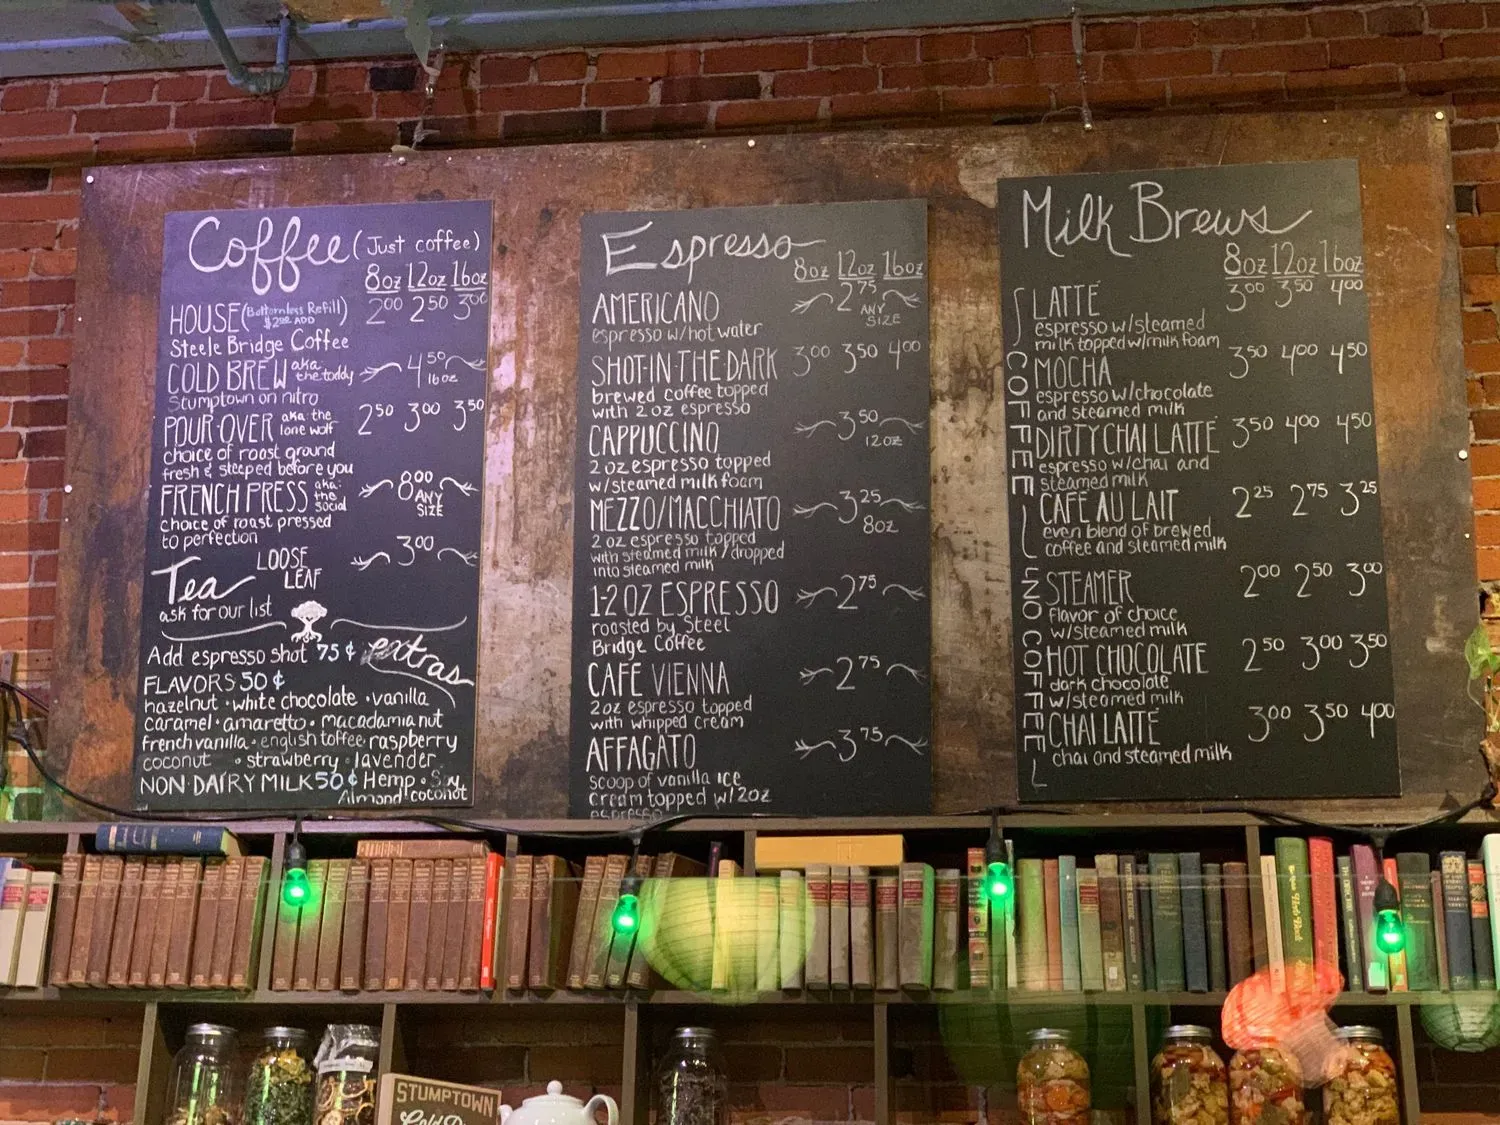 Coffee (Just coffee)
8oz 12oz 16oz
HOUSE (Bottomless Refill) 200 2 50 3 00
$2.00 ADD
Steele Bridge Coffee
COLD BREW aka the toddy 4 50 16oz
Stumptown on nitro
POUR·OVER aka the lone wolf 2 50 3 00 3 50
choice of roast ground
fresh & steeped before you
FRENCH PRESS aka: the social 8 00 ANY SIZE
choice of roast pressed
to perfection
Tea LOOSE LEAF 3 00
ask for our list
Add espresso shot 75¢ extras
FLAVORS 50¢
hazelnut · white chocolate · vanilla
caramel · amaretto · macadamia nut
french vanilla · english toffee raspberry
coconut · strawberry · lavender
NON·DAIRY MILK 50¢ Hemp · Soy
Almond coconut
Espresso
8oz 12oz 16oz
AMERICANO 2 75 ANY SIZE
espresso w/hot water
SHOT·IN·THE·DARK 3 00 3 50 4 00
brewed coffee topped
with 2 oz espresso
CAPPUCCINO 3 50 12oz
2 oz espresso topped
w/steamed milk foam
MEZZO/MACCHIATO 3 25 8oz
2 oz espresso topped
with steamed milk / dropped
into steamed milk
1-2 OZ ESPRESSO 2 75
roasted by Steel
Bridge Coffee
CAFE VIENNA 2 75
2oz espresso topped
with whipped cream
AFFAGATO 3 75
scoop of vanilla ice
cream topped w/ 2oz
espresso
Milk Brews
8oz 12oz 16oz
COFFEE
LATTE 3 00 3 50 4 00
espresso w/steamed
milk topped w/milk foam
MOCHA 3 50 4 00 4 50
espresso w/chocolate
and steamed milk
DIRTY CHAI LATTE 3 50 4 00 4 50
espresso w/chai and
steamed milk
CAFE AU LAIT 2 25 2 75 3 25
even blend of brewed
coffee and steamed milk
NO COFFEE
STEAMER 2 00 2 50 3 00
flavor of choice
w/steamed milk
HOT CHOCOLATE 2 50 3 00 3 50
dark chocolate
w/steamed milk
CHAI LATTE 3 00 3 50 4 00
chai and steamed milk
STUMPTOWN